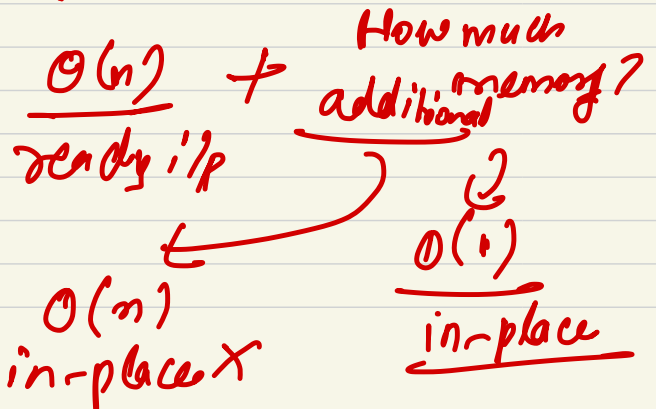 O(n) + How much
additional memory?
ready i/p
O(n)
in-place X
O(1)
in-place